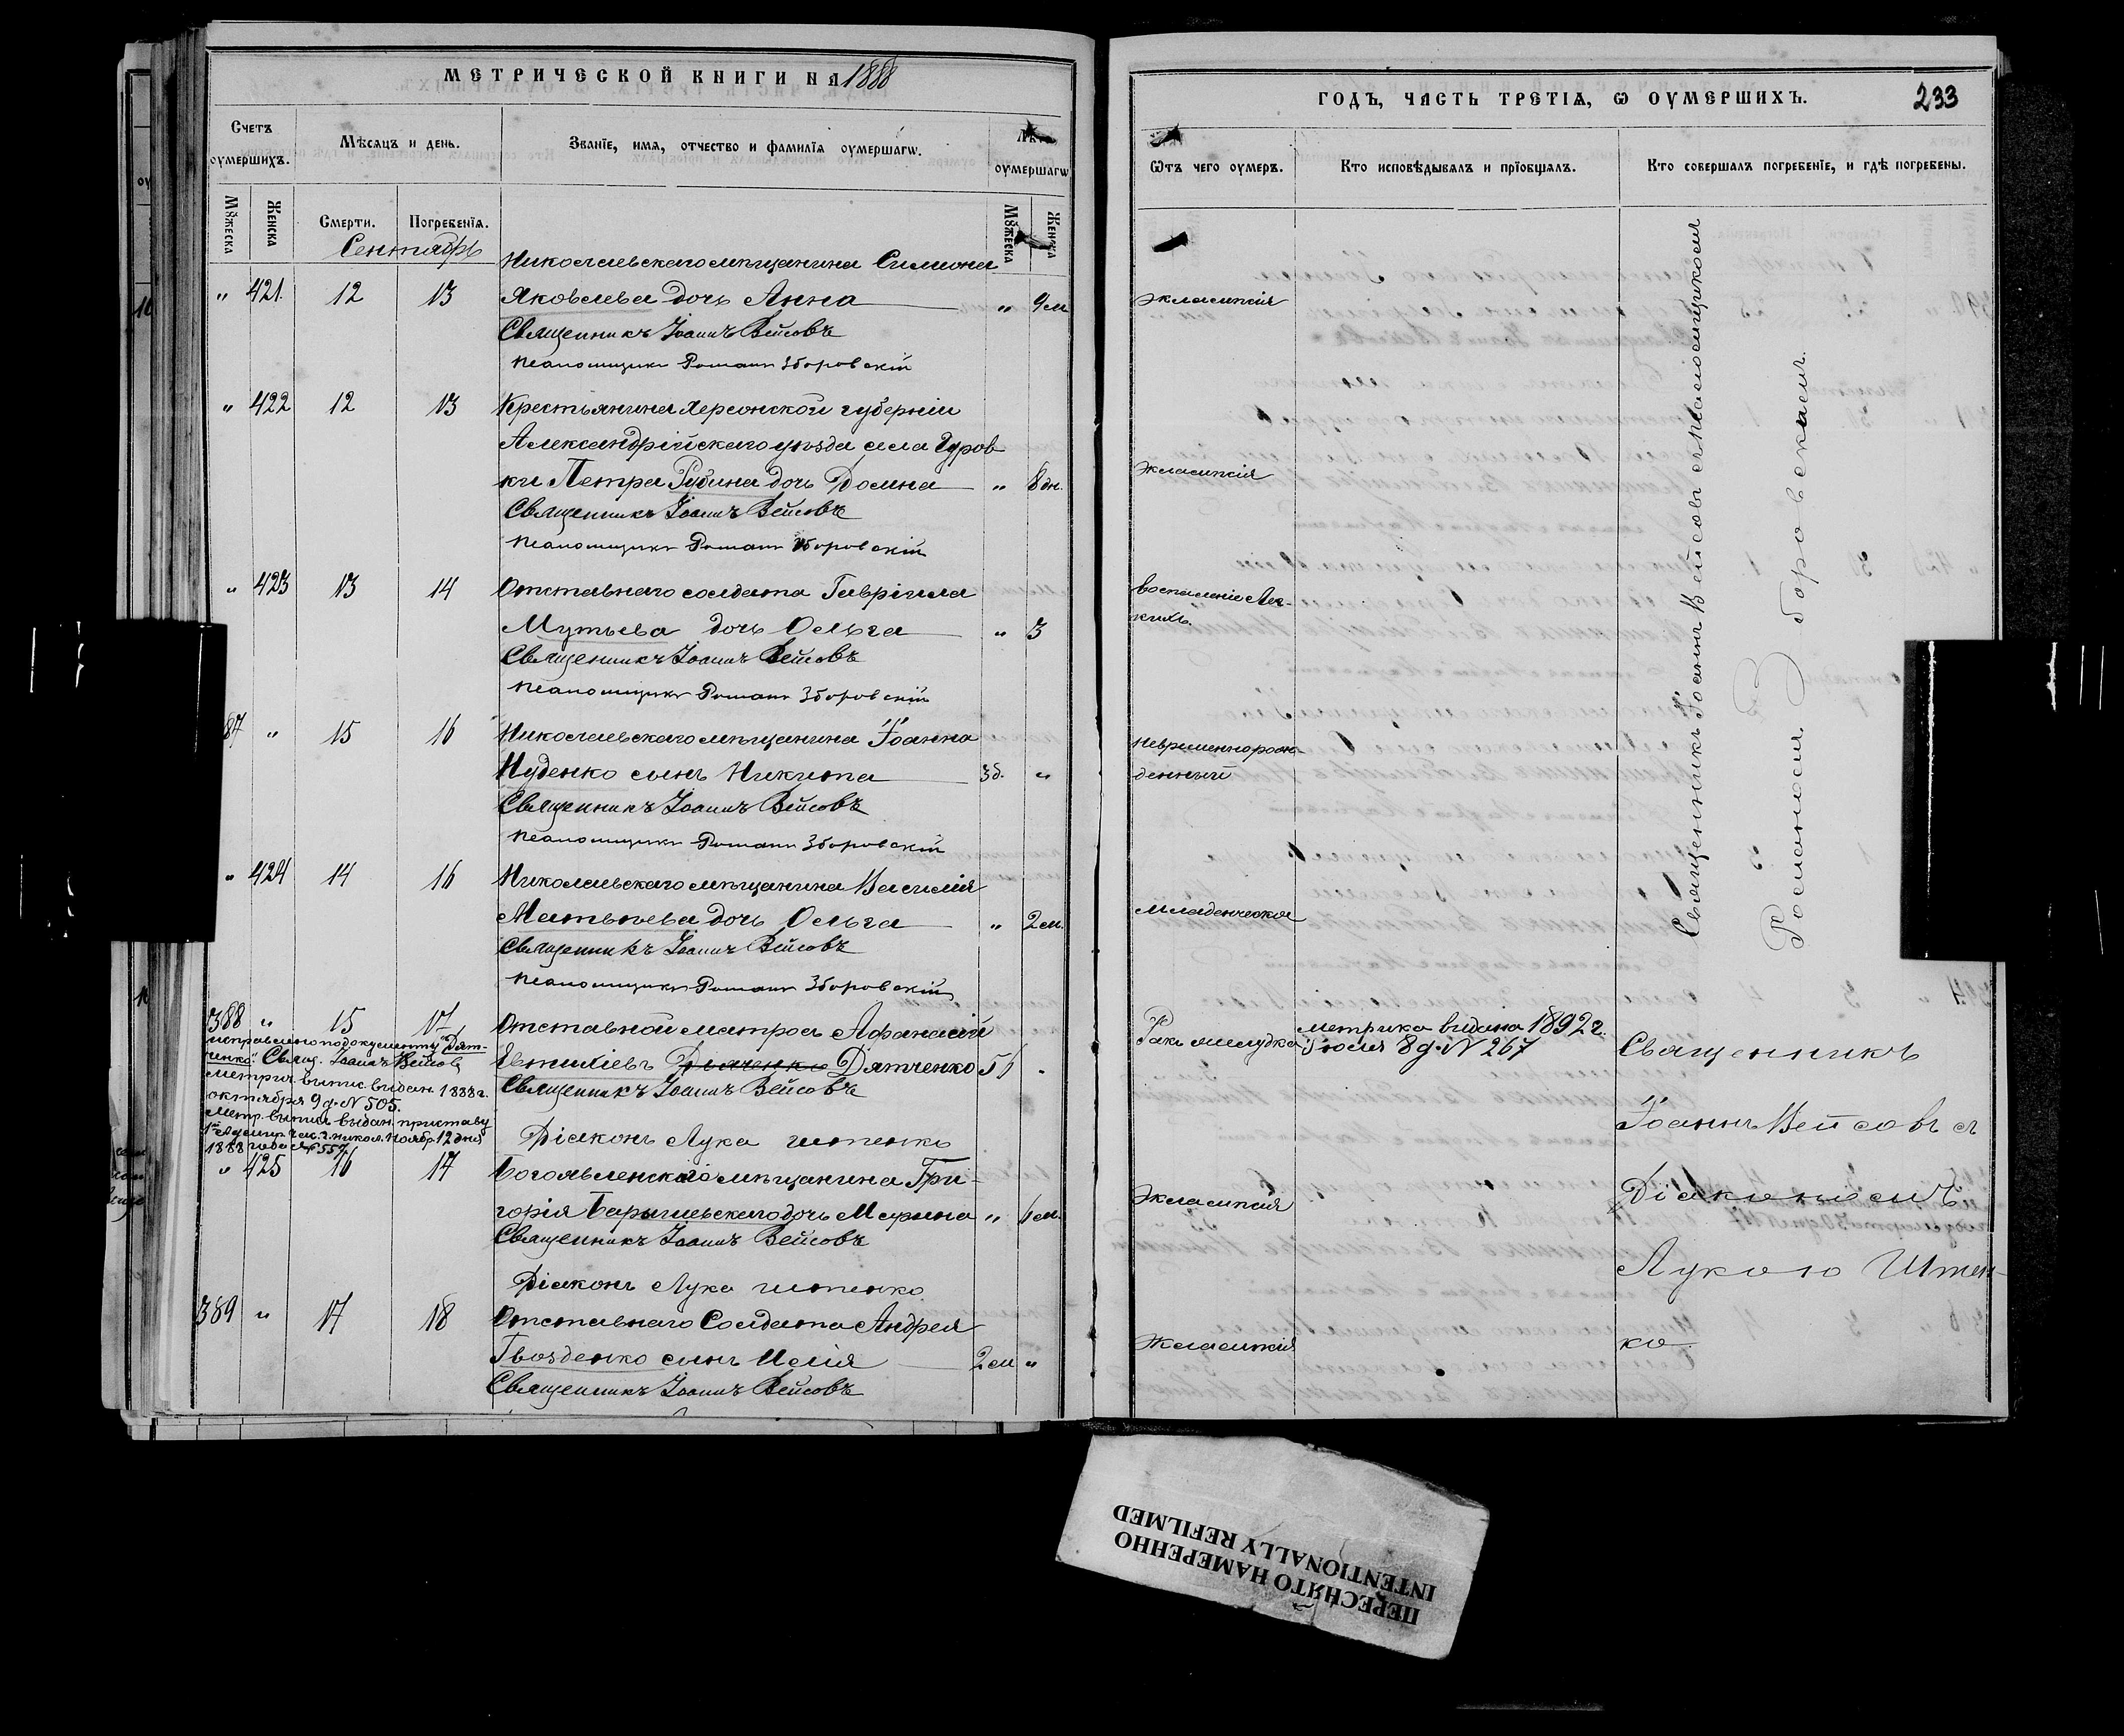 МЕТРИЧЕСКОЙ КНИГИ НА 1888
Счетъ оумершихъ.
Мѣсяцъ и день.
Званіе, имя, отчество и фамилія оумершагѡ.
Лѣта оумершагѡ
Мꙋжеска
Женска
Смерти.
Погребенія.
Мꙋжеска
Женска
Сентябрь
Николаевскаго мѣщанина Симона
" 421. 12 13 Яковлева дочь Анна " 9 м
Священникъ Іоаннъ Вейсовъ
Псаломщикъ Романъ Зборовскій
" 422 12 13 Крестьянина Херсонской губерніи
Александрійскаго уѣзда села Гуров
ки Петра Рубина дочь Домна " 8 дн.
Священникъ Іоаннъ Вейсовъ
Псаломщикъ Романъ Зборовскій
" 423 13 14 Отставнаго солдата Гавріила
Мутьева дочь Ольга " 3
Священникъ Іоаннъ Вейсовъ
Псаломщикъ Романъ Зборовскій
87 " 15 16 Николаевскаго мѣщанина Іоанна
Нуденко сынъ Никита 3 д. "
Священникъ Іоаннъ Вейсовъ
Псаломщикъ Романъ Зборовскій
" 424 14 16 Николаевскаго мѣщанина Василія
Матвѣева дочь Ольга " 2 м.
Священникъ Іоаннъ Вейсовъ
Псаломщикъ Романъ Зборовскій
388 " 15 17 Отставной матросъ Афанасій
Евтихіевъ Дьяченко Дятченко 51 "
Священникъ Іоаннъ Вейсовъ
Діаконъ Лука Штенко
исправлено по документу "Дят-
ченко". Свящ. Іоаннъ Вейсовъ
Метрич. выпис. выдан. 1888 г.
октября 9 д. N 505.
Метр. выпись выдан. приставу
1й Адмир. час. г. Никол. Ноябр. 12 дня
1888 года N 557
" 425 16 17 Богоявленскаго мѣщанина Гри-
горія Барышевскаго дочь Марина " 1 м.
Священникъ Іоаннъ Вейсовъ
Діаконъ Лука Штенко
389 " 17 18 Отставнаго Солдата Андрея
Гвозденко сынъ Илія 2 м "
Священникъ Іоаннъ Вейсовъ
ГОДЪ, ЧАСТЬ ТРЕТІЯ, Ѡ ОУМЕРШИХЪ.
233
Ѿтъ чего оумеръ.
Кто исповѣдывалъ и пріобщалъ.
Кто совершалъ погребеніе, и гдѣ погребены.
эклампсія
эклампсія
воспаленіе лег-
кихъ.
невременнорож-
денный
младенческая
Ракъ желудка
метрика выдана 1892 г.
Іюля 8 д. N 267
эклампсія
эклампсія
Священникъ Іоаннъ Вейсовъ съ псаломщикомъ
Романомъ Зборовскимъ.
Священникъ
Іоаннъ Вейсовъ съ
Діакономъ
Лукою Штен-
ко
ПЕРЕСНЯТО НАМЕРЕННО
INTENTIONALLY REFILMED